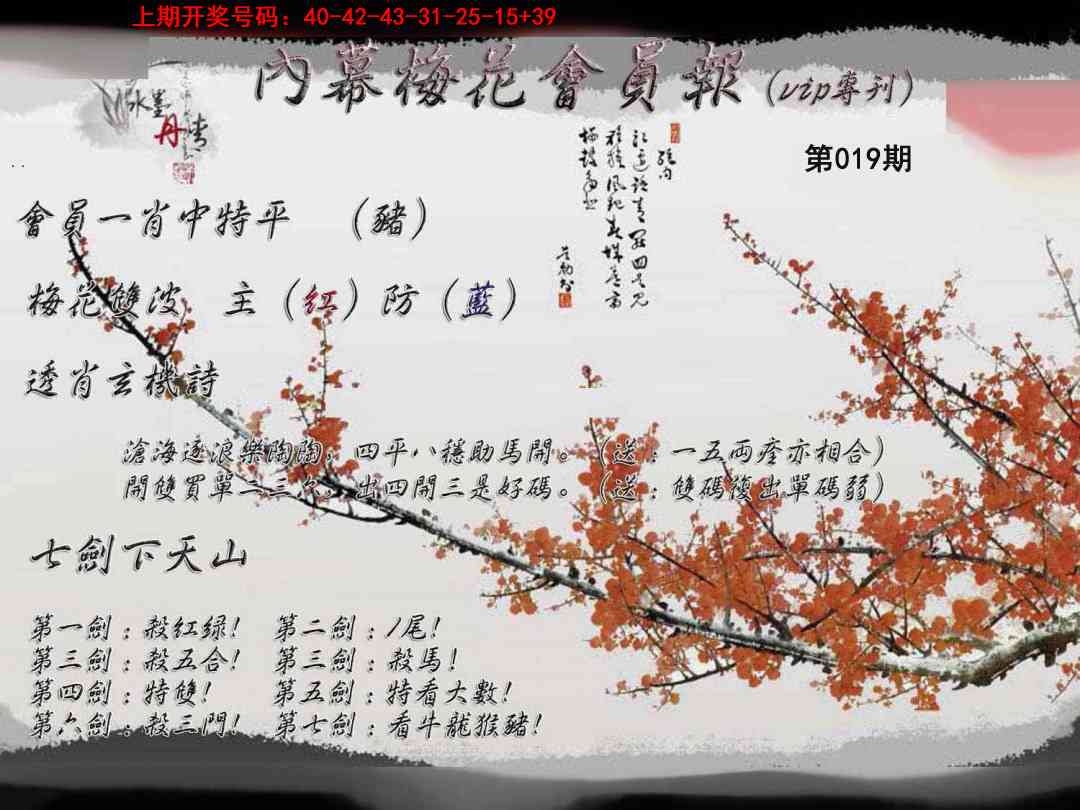 上期开奖号码：40-42-43-31-25-15+39
內幕梅花會員報（vip專刊）
水墨
丹青
第019期
會員一肖中特平　（豬）
梅花雙波　主（紅）防（藍）
透肖玄機詩
滄海逐浪樂陶陶，四平八穩助馬開。（送：一五兩產亦相合）
開雙買單二三次，出四開三是好碼。（送：雙碼復出單碼弱）
七劍下天山
第一劍：殺紅绿！　第二劍：1尾！
第三劍：殺五合！　第三劍：殺馬！
第四劍：特雙！　第五劍：特看大數！
第六劍：殺三門！　第七劍：看牛龍猴豬！